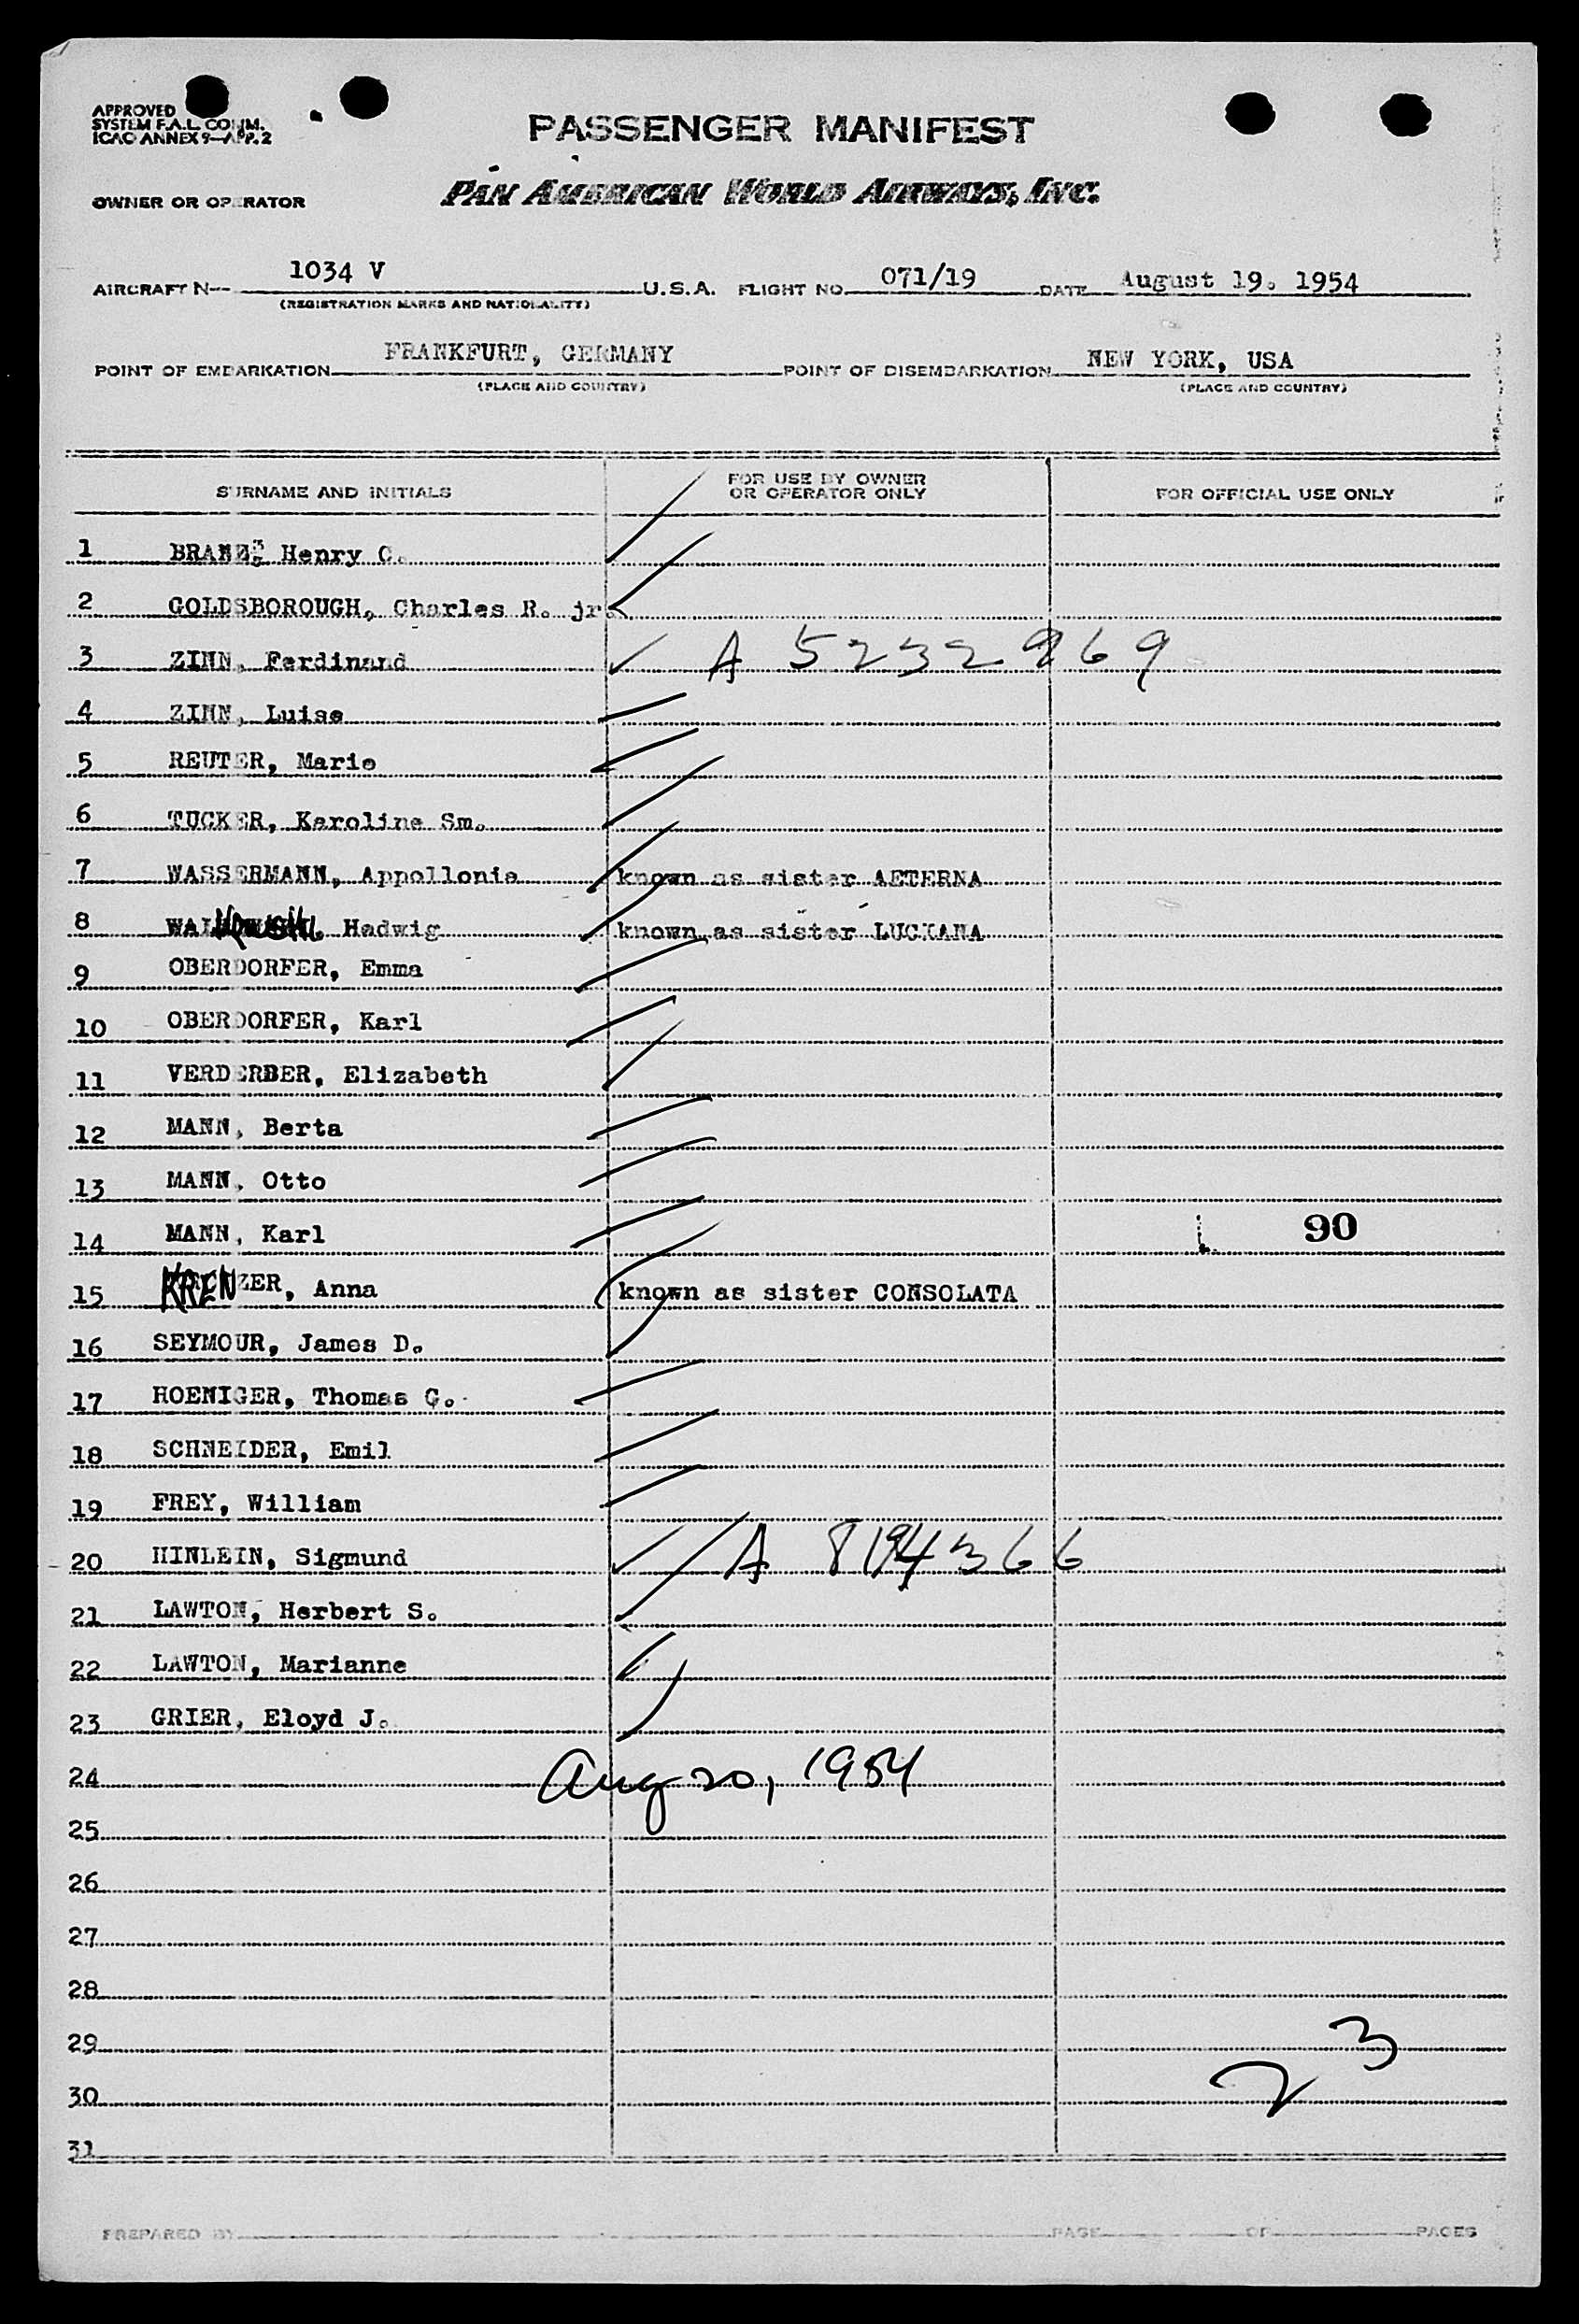 APPROVED
SYSTEM F.A.L. COMM.
ICAO ANNEX 9—APP. 2
PASSENGER MANIFEST
OWNER OR OPERATOR PAN AMERICAN WORLD AIRWAYS, INC.
AIRCRAFT N— 1034 V U.S.A. FLIGHT NO. 071/19 DATE August 19. 1954
(REGISTRATION MARKS AND NATIONALITY)
POINT OF EMBARKATION FRANKFURT, GERMANY POINT OF DISEMBARKATION NEW YORK, USA
(PLACE AND COUNTRY) (PLACE AND COUNTRY)
SURNAME AND INITIALS FOR USE BY OWNER OR OPERATOR ONLY FOR OFFICIAL USE ONLY
1 Henry C.
2 GOLDSBOROUGH, Charles R. jr.
3 ZINN, Ferdinand A 5232969
4 ZINN, Luise
5 REUTER, Marie
6 TUCKER, Karoline Sm.
7 WASSERMANN, Appollonia known as sister AETERNA
8 Hedwig known as sister LUCIANA
9 OBERDORFER, Emma
10 OBERDORFER, Karl
11 VERDERBER, Elizabeth
12 MANN, Berta
13 MANN, Otto
14 MANN, Karl 90
15 KRENZER, Anna known as sister CONSOLATA
16 SEYMOUR, James D.
17 HOENIGER, Thomas G.
18 SCHNEIDER, Emil
19 FREY, William
20 HINLEIN, Sigmund A 8194366
21 LAWTON, Herbert S.
22 LAWTON, Marianne
23 GRIER, Eloyd J.
24 Aug 20, 1954
25
26
27
28
29
30 23
31
PREPARED BY PAGE OF PAGES